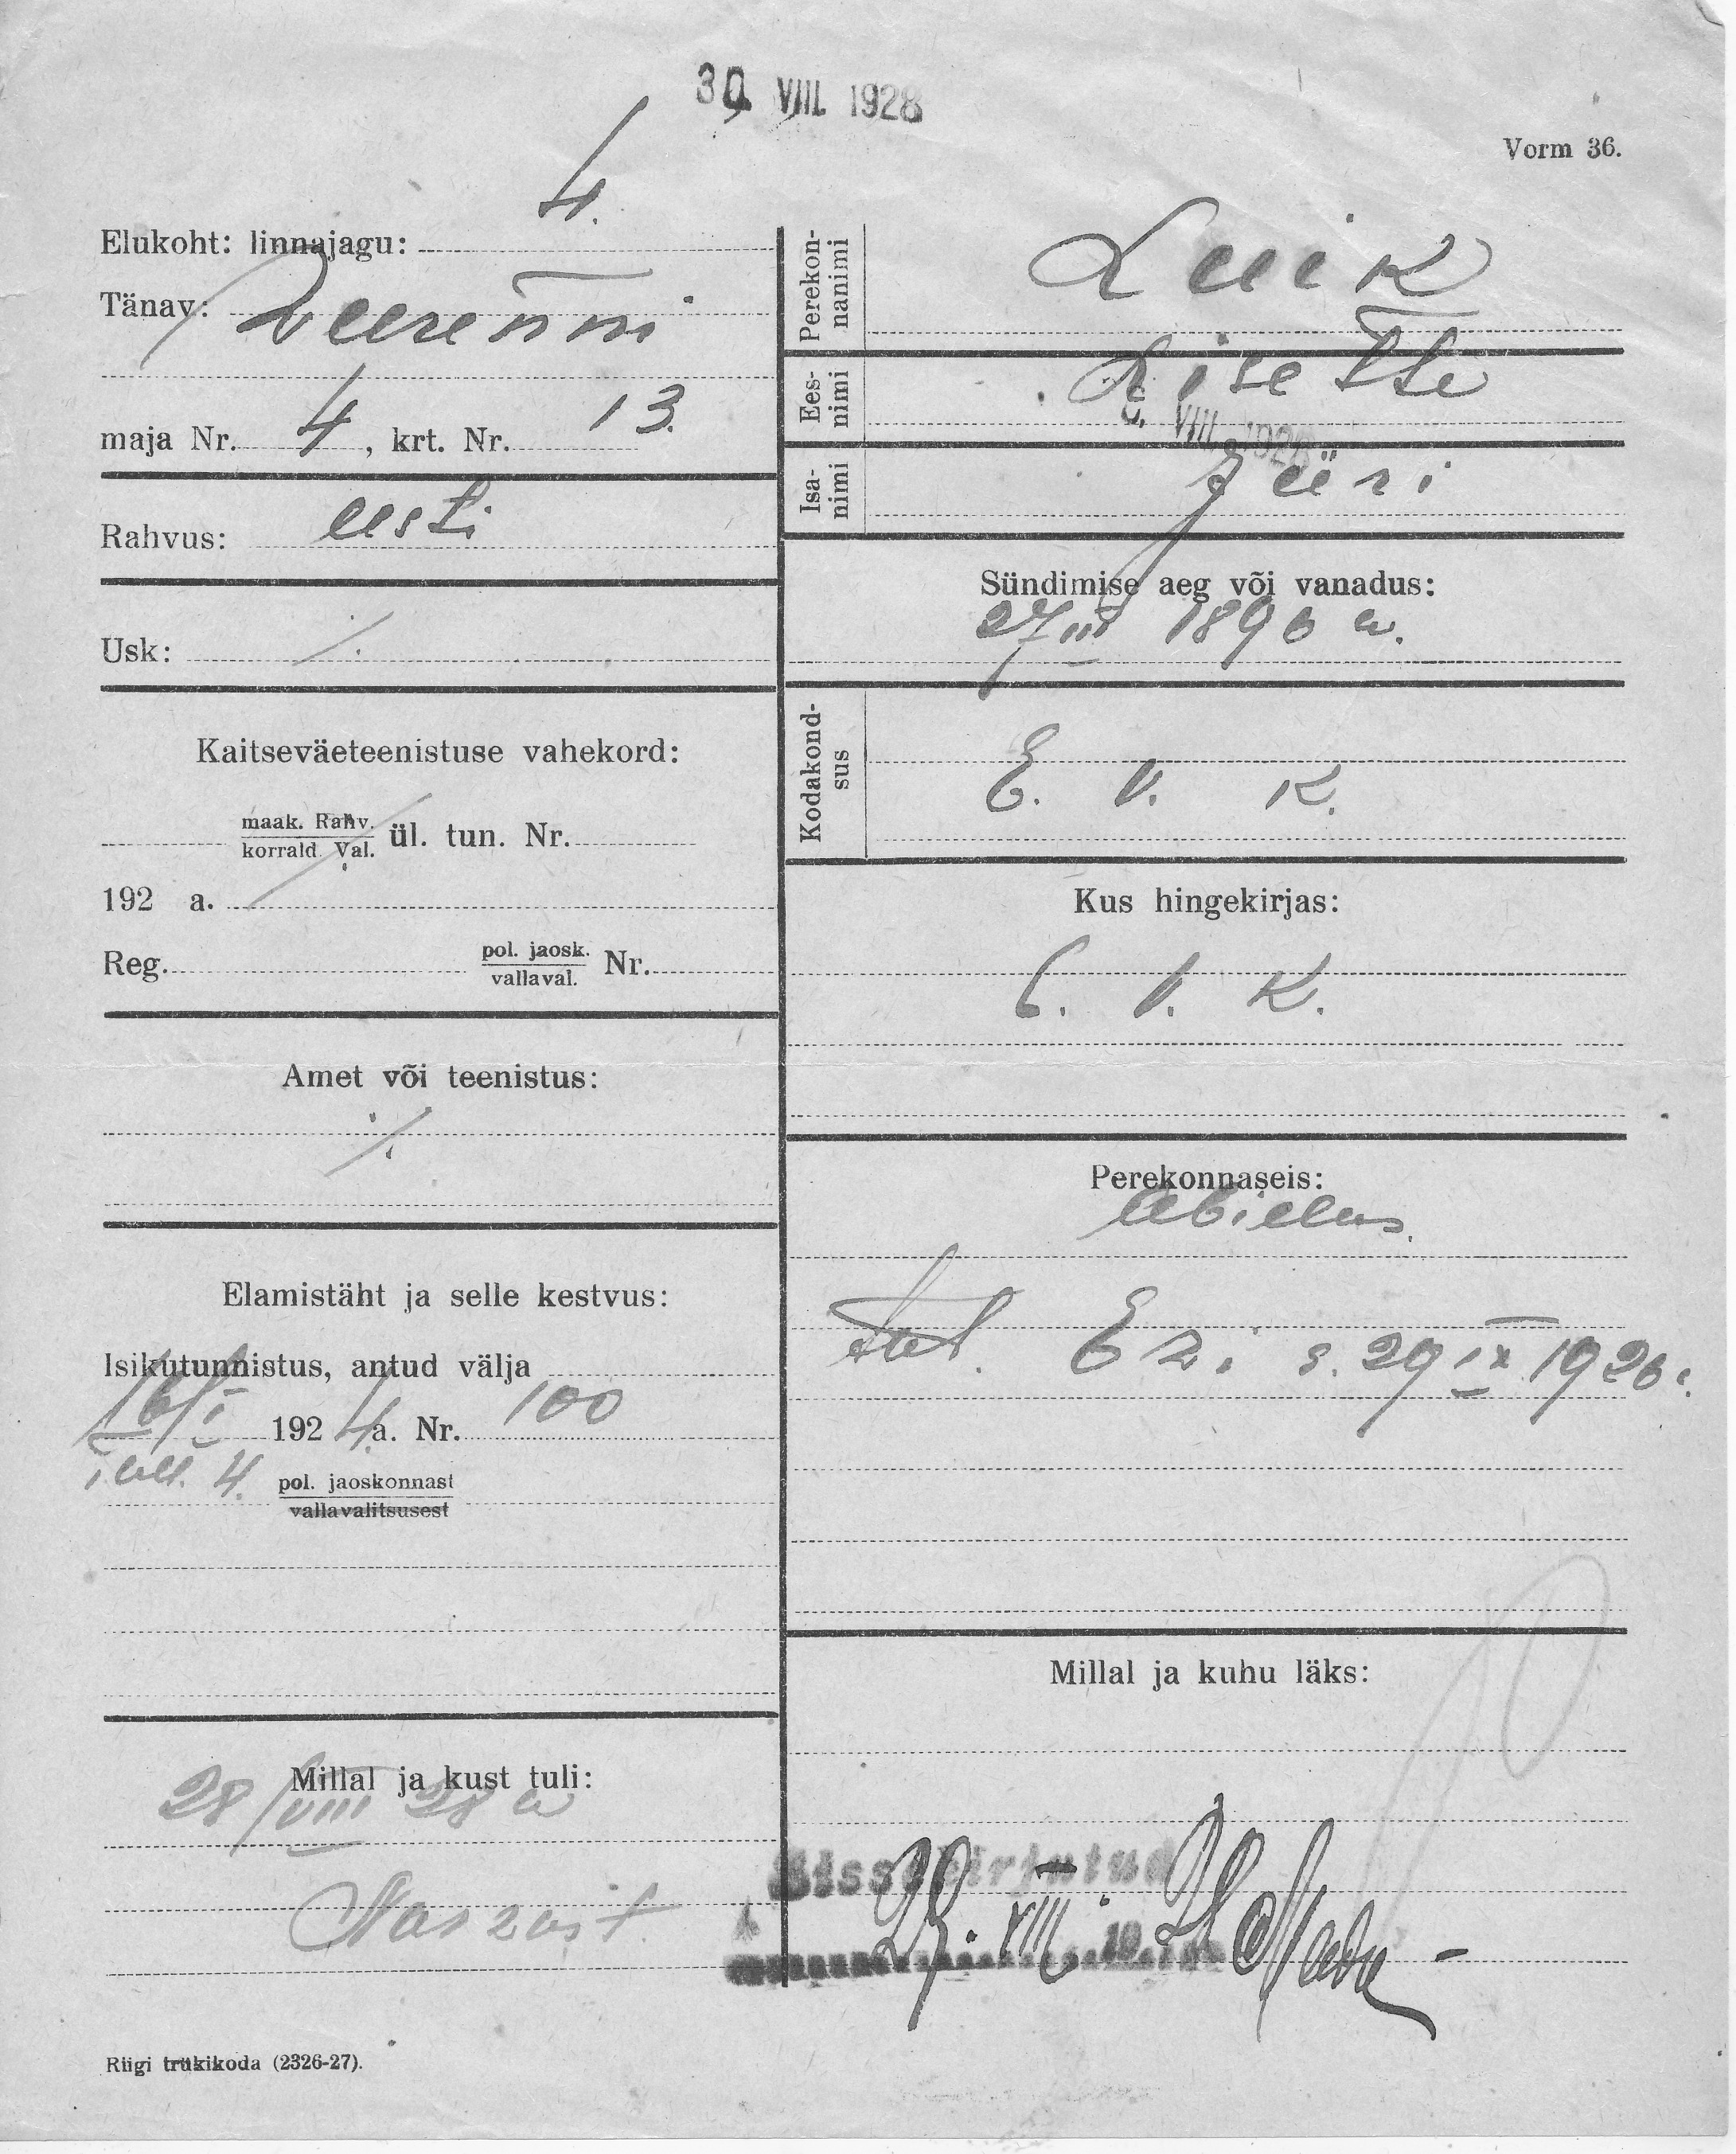 30 VIII 1928
Vorm 36.
4.
Elukoht: linnajagu:
Tänav: Veerenni
maja Nr. 4, krt. Nr. 13.
Rahvus: eesti
Usk: ./.
Kaitseväeteenistuse vahekord:
maak. Rahv.
korrald. Val. ül. tun. Nr.
192 a.
Reg. pol. jaosk. Nr.
vallaval.
Amet või teenistus:
./.
Elamistäht ja selle kestvus:
Isikutunnistus, antud välja
16/I 1924 a. Nr. 100
Tall. 4. pol. jaoskonnast
vallavalitsusest
Millal ja kust tuli:
28/VIII 28 a
Riigi trükikoda (2326-27).
Perekonnanimi Luik
Eesnimi Lisette
VIII 1928
Isanimi Jüri
Sündimise aeg või vanadus:
27 III 1896 a.
Kodakondsus
E. V. K.
Kus hingekirjas:
E. V. K.
Perekonnaseis:
Abielus.
tüt. Evi s. 29 IX 1926.
Millal ja kuhu läks:
Sissekirjutud
29. VIII. 28